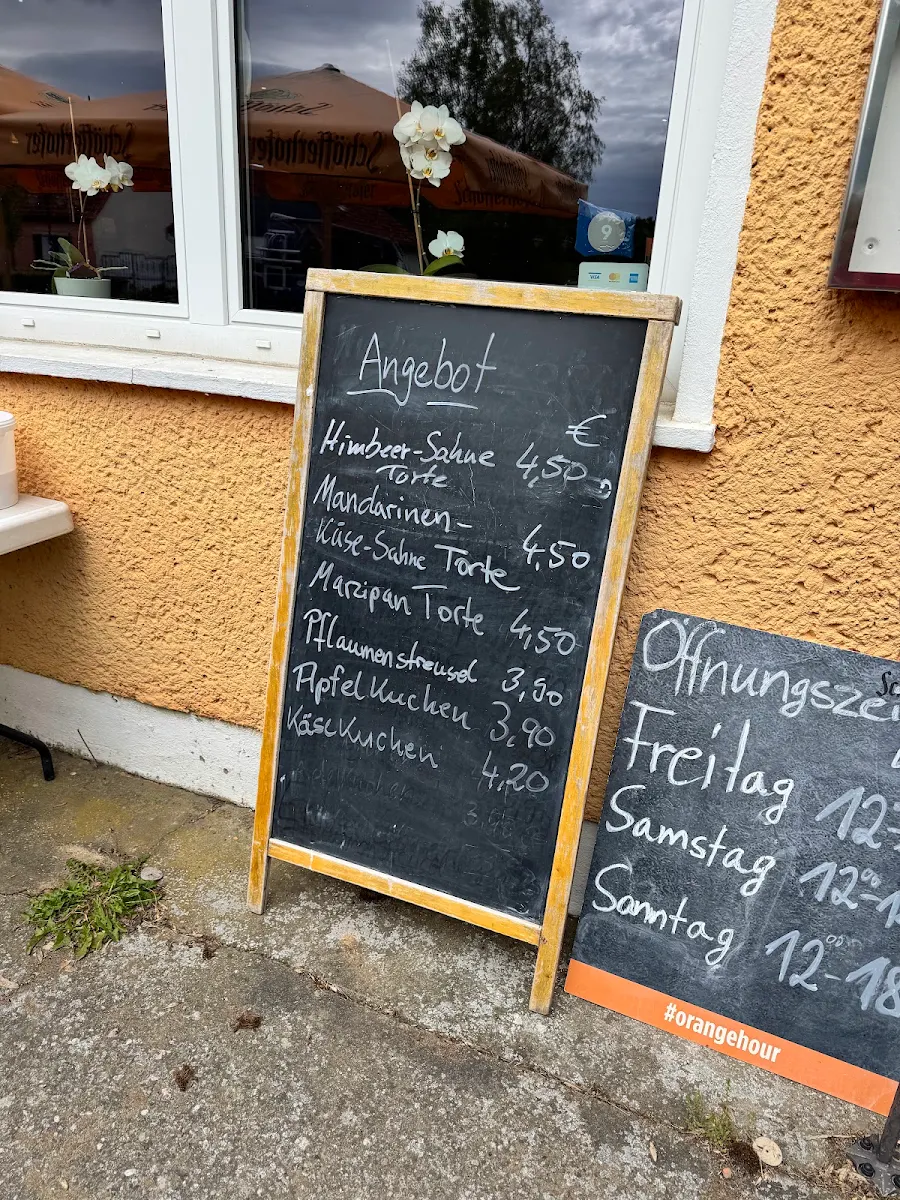 Schöfferhofer
Schöfferhofer
9
VISA
Angebot
€
Himbeer-Sahne 4,50
Torte
Mandarinen-
Käse-Sahne Torte 4,50
Marzipan Torte 4,50
Pflaumenstreusel 3,90
Apfelkuchen 3,90
Käsekuchen 4,20
Öffnungszei
Freitag 12
Samstag 12⁰⁰-1
Sonntag 12⁰⁰-18
#orangehour